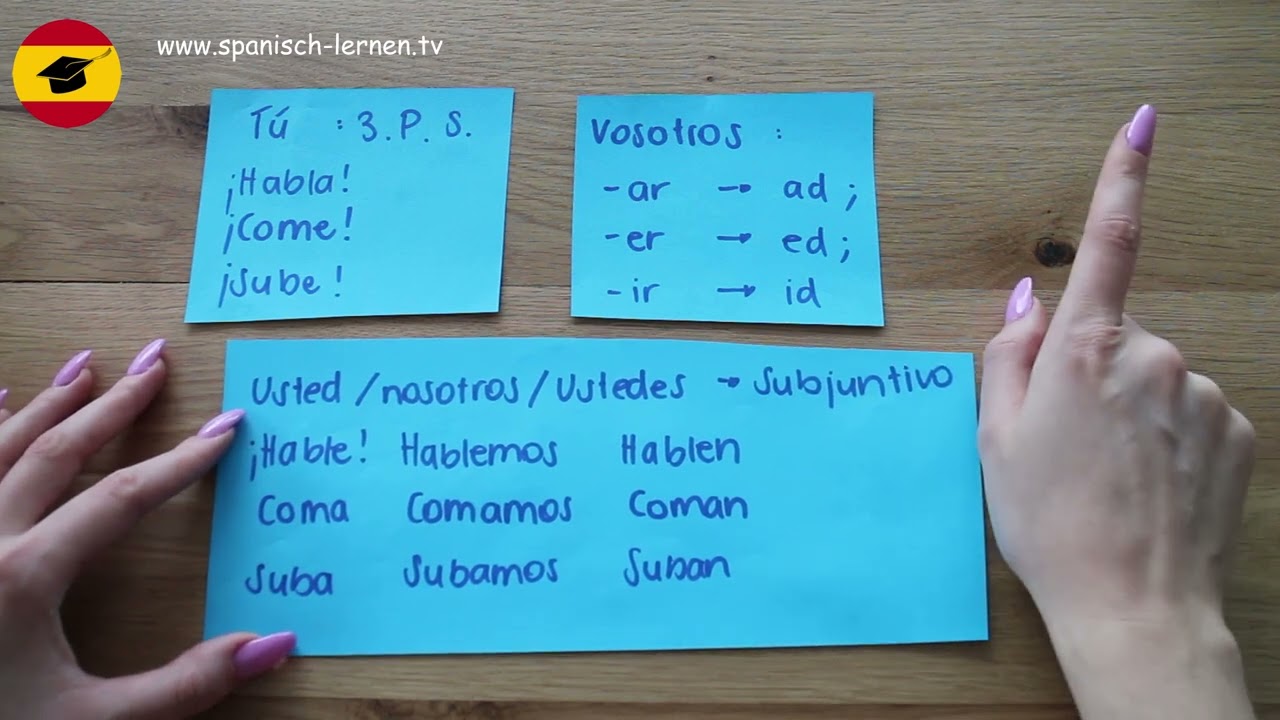 www.spanisch-lernen.tv
Tú : 3. P. S.
¡Habla!
¡Come!
¡Sube!
Vosotros :
-ar → ad ;
-er → ed ;
-ir → id
Usted / nosotros / Ustedes → Subjuntivo
¡Hable! Hablemos Hablen
Coma Comamos Coman
Suba Subamos Suban